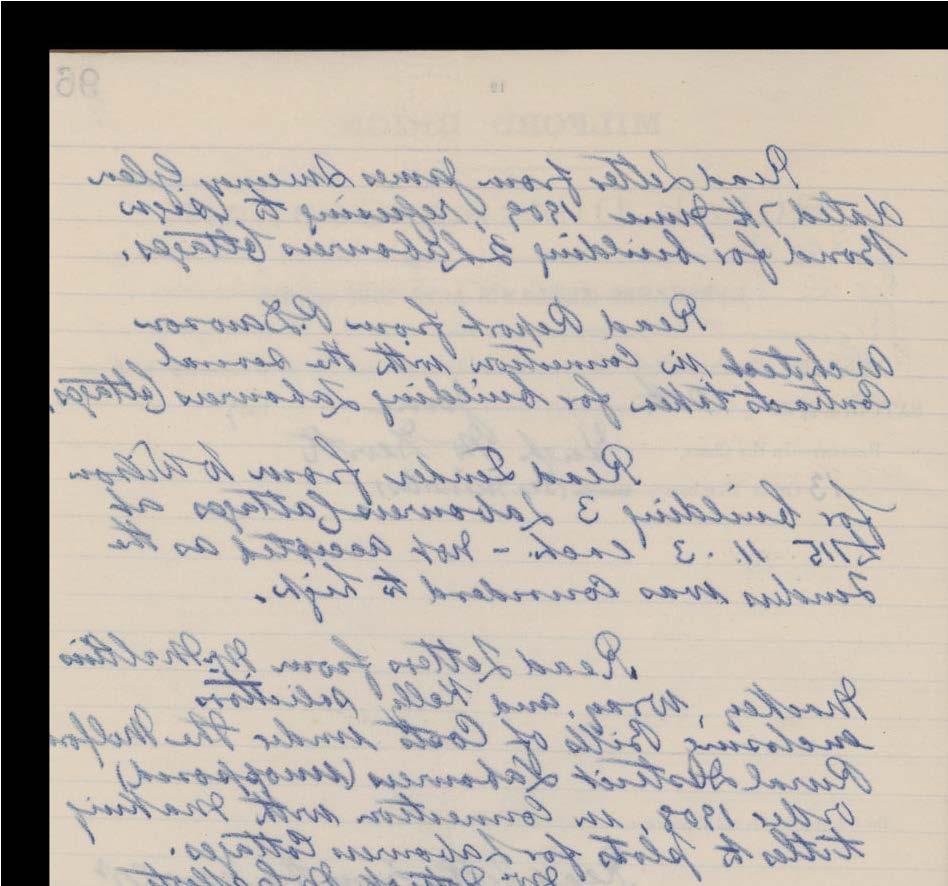 96
12
MILFORD UNION
Read Letter from James Sweeney Glen
dated 7th June 1909, refusing to sign
Bond for building 2 Labourers Cottages.
Read Report from P. Dawson
Architect in Connection with the several
Contracts taken for building Labourers Cottages.
Read Tender from to Wilson
for building 3 Labourers Cottages at
£115. 11. 3 each - not accepted as the
Tender was Considered to high.
Read Letters from
Mackey, Wray, and Kelly, Solicitors
enclosing Bills of Costs under the Milford
Rural District Labourers (unopposed)
Order 1908, in Connection with making
titles to plots for Labourers Cottages.